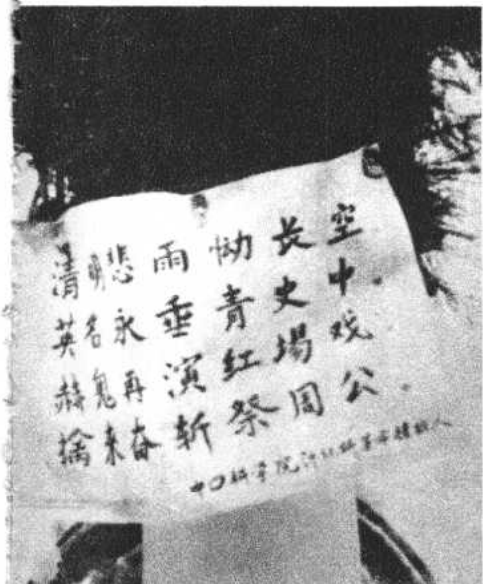 清明悲雨恸长空
英名永垂青史中.
赫鬼再演红場戏
擒来奋斩祭周公.
中囗科学院